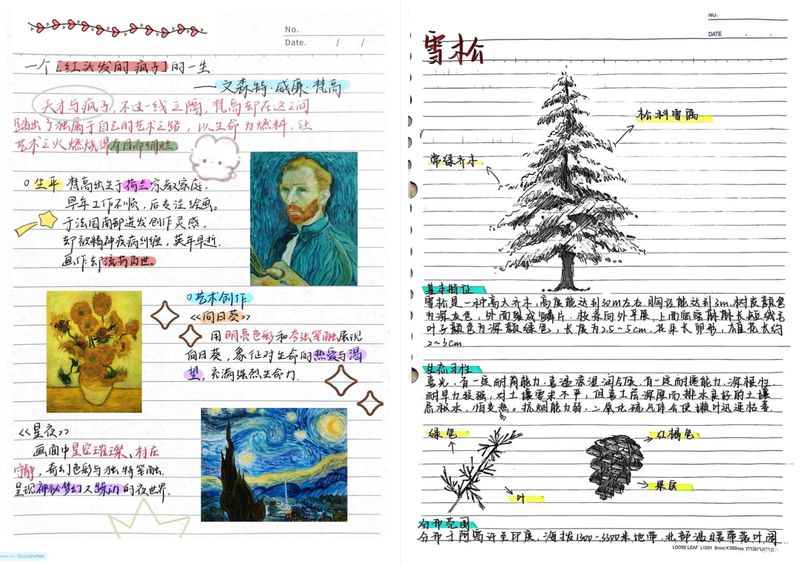 No.
Date. / /
一个【红头发的疯子】的一生
——文森特·威廉·梵高
天才与疯子,不过一线之隔,梵高却在这之间
踏出了独属于自己的艺术之路,以生命为燃料,让
艺术之火燃烧得夺目而绚烂
生平 梵高出生于荷兰宗教家庭,
早年工作不顺,后专注绘画。
于法国南部迸发创作灵感,
却被精神疾病纠缠,英年早逝,
画作却流芳百世。
艺术创作
《向日葵》
用明亮色彩和夸张笔触展现
向日葵,象征对生命的热爱与渴
望,充满强烈生命力.
《星夜》
画面中星空璀璨、村庄
宁静,奇幻色彩与独特笔触,
呈现神秘梦幻又躁动的夜世界.
Goodnotes
NO.
DATE
雪松
松科雪松
常绿乔木
基本特征
雪松是一种高大乔木,高度能达到50m左右,胸径能达到3m.树皮颜色
为深灰色,外面裂成鳞片.枝条向外平展,
叶子颜色为深散绿色,长度为2.5~5cm.花朵长卵形,雄花长约
2~3cm
生态习性
喜光,有一定耐荫能力.喜温凉湿润气候,有一定耐寒能力.深根性
耐旱力较强,对土壤要求不严,但喜土层深厚而排水良好的土壤
忌积水,怕炎热.抗烟能力弱.二氧化硫气体会使嫩叶迅速枯萎.
绿色
叶
红褐色
果层
分布范围
分布于阿富汗至印度,海拔1300~3300米地带,北部温暖带落叶阔
LOOSE LEAF L1201 6mm×36lines maruman